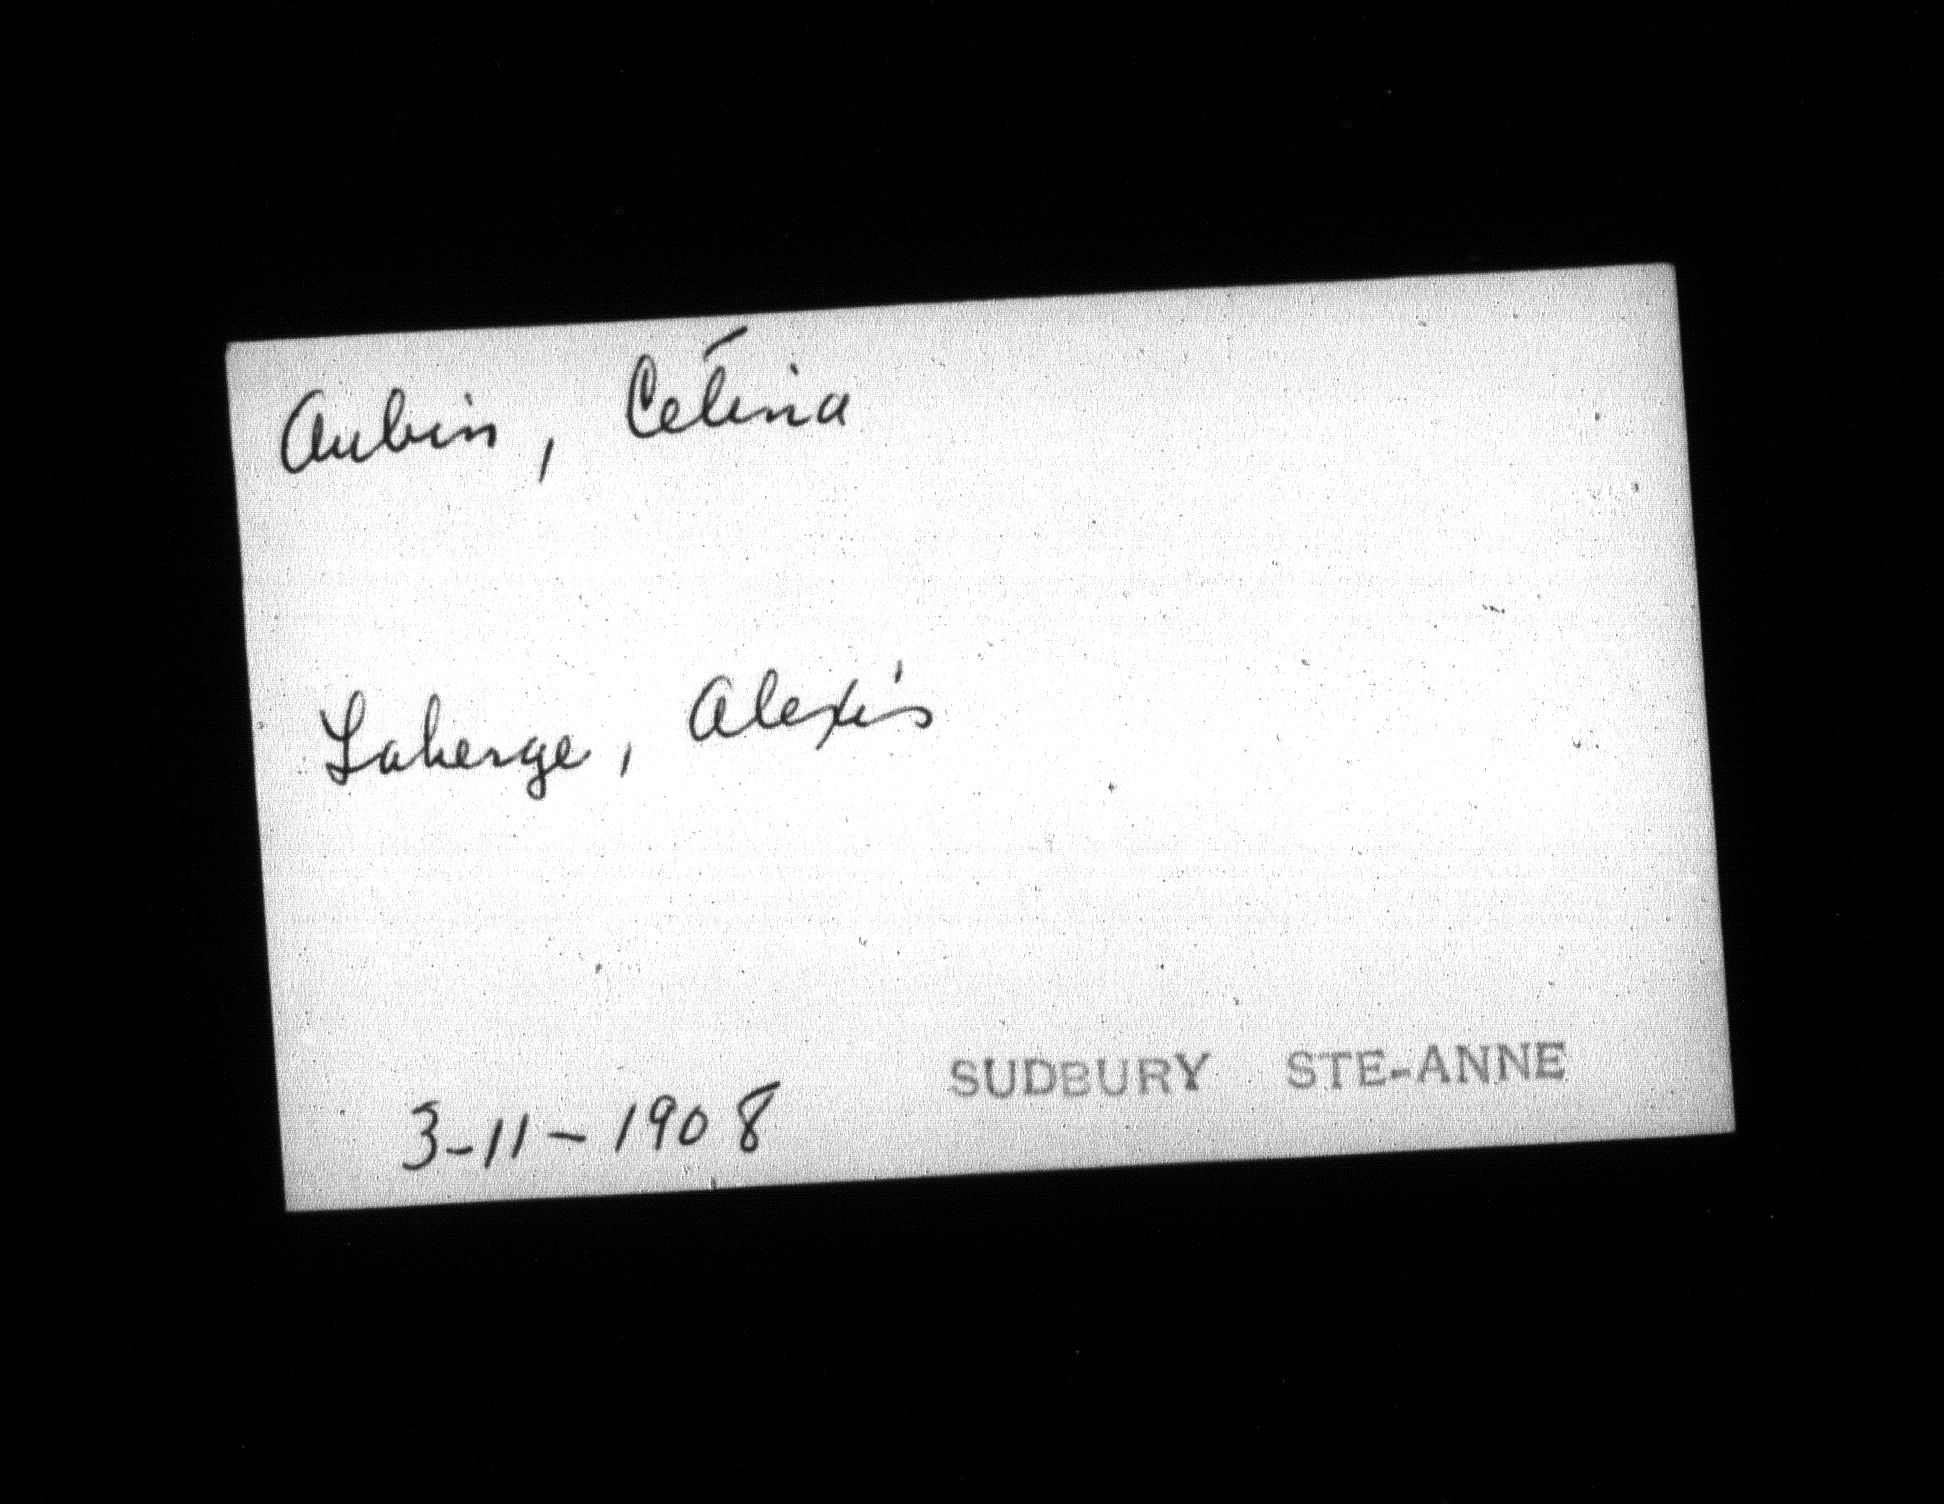 Aubin, Célina
Laberge, Alexis
3-11-1908 SUDBURY STE-ANNE